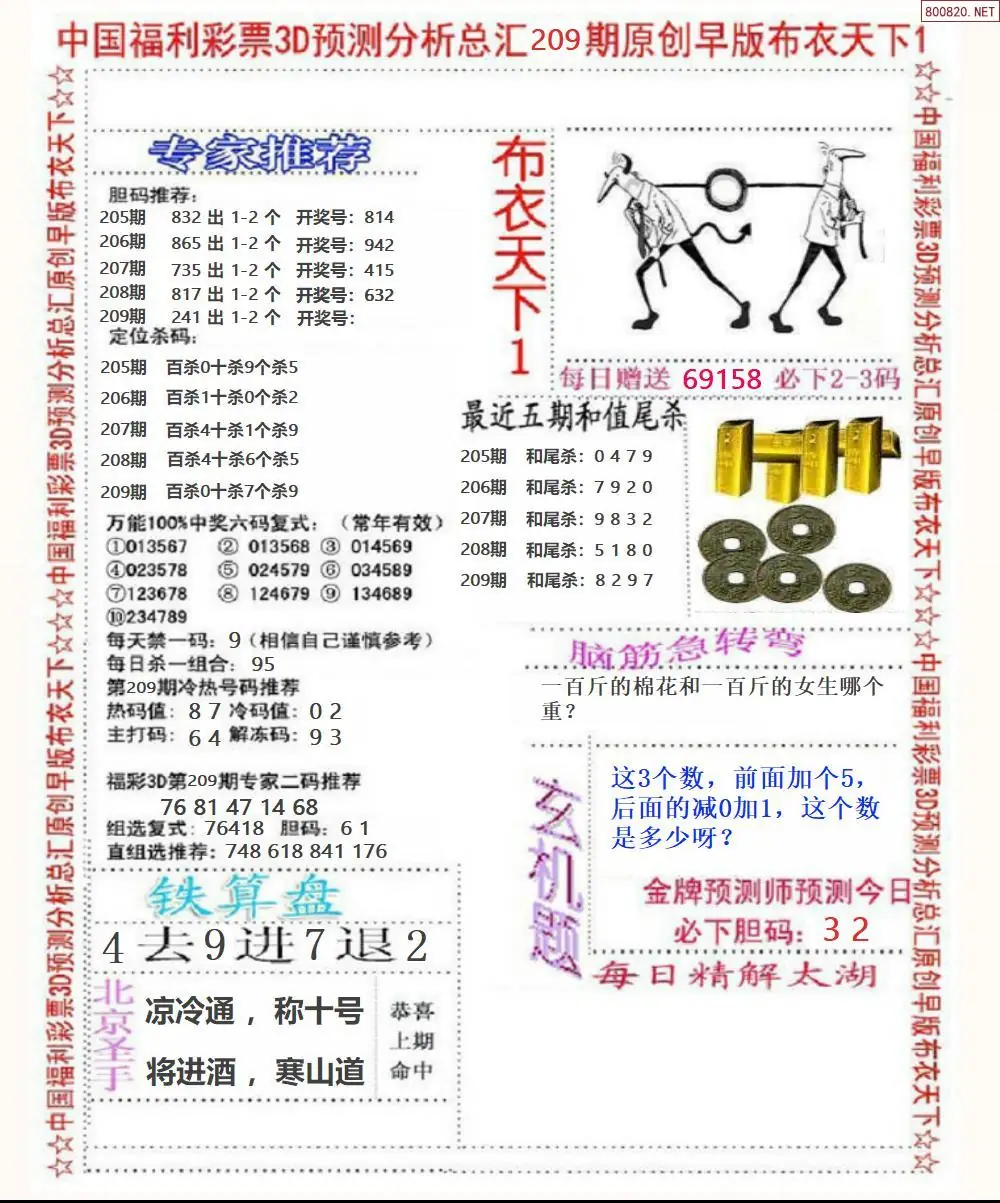 800820.NET
中国福利彩票3D预测分析总汇209期原创早版布衣天下1
☆☆中国福利彩票3D预测分析总汇原创早版布衣天下☆☆中国福利彩票3D预测分析总汇原创早版布衣天下☆☆
专家推荐
胆码推荐:
205期 832 出 1-2 个 开奖号: 814
206期 865 出 1-2 个 开奖号: 942
207期 735 出 1-2 个 开奖号: 415
208期 817 出 1-2 个 开奖号: 632
209期 241 出 1-2 个 开奖号:
定位杀码:
205期 百杀0十杀9个杀5
206期 百杀1十杀0个杀2
207期 百杀4十杀1个杀9
208期 百杀4十杀6个杀5
209期 百杀0十杀7个杀9
万能100%中奖六码复式: (常年有效)
①013567 ② 013568 ③ 014569
④023578 ⑤ 024579 ⑥ 034589
⑦123678 ⑧ 124679 ⑨ 134689
⑩234789
每天禁一码: 9 (相信自己谨慎参考)
每日杀一组合: 95
第209期冷热号码推荐
热码值: 8 7 冷码值: 0 2
主打码: 6 4 解冻码: 9 3
福彩3D第209期专家二码推荐
76 81 47 14 68
组选复式: 76418 胆码: 6 1
直组选推荐: 748 618 841 176
铁算盘
4去9进7退2
北京圣手
凉冷通，称十号
将进酒，寒山道
恭喜
上期
命中
布衣天下1
每日赠送 69158 必下2-3码
最近五期和值尾杀
205期 和尾杀: 0 4 7 9
206期 和尾杀: 7 9 2 0
207期 和尾杀: 9 8 3 2
208期 和尾杀: 5 1 8 0
209期 和尾杀: 8 2 9 7
脑筋急转弯
一百斤的棉花和一百斤的女生哪个
重?
玄机题
这3个数，前面加个5，
后面的减0加1，这个数
是多少呀?
金牌预测师预测今日
必下胆码: 3 2
每日精解太湖
☆☆中国福利彩票3D预测分析总汇原创早版布衣天下☆☆中国福利彩票3D预测分析总汇原创早版布衣天下☆☆